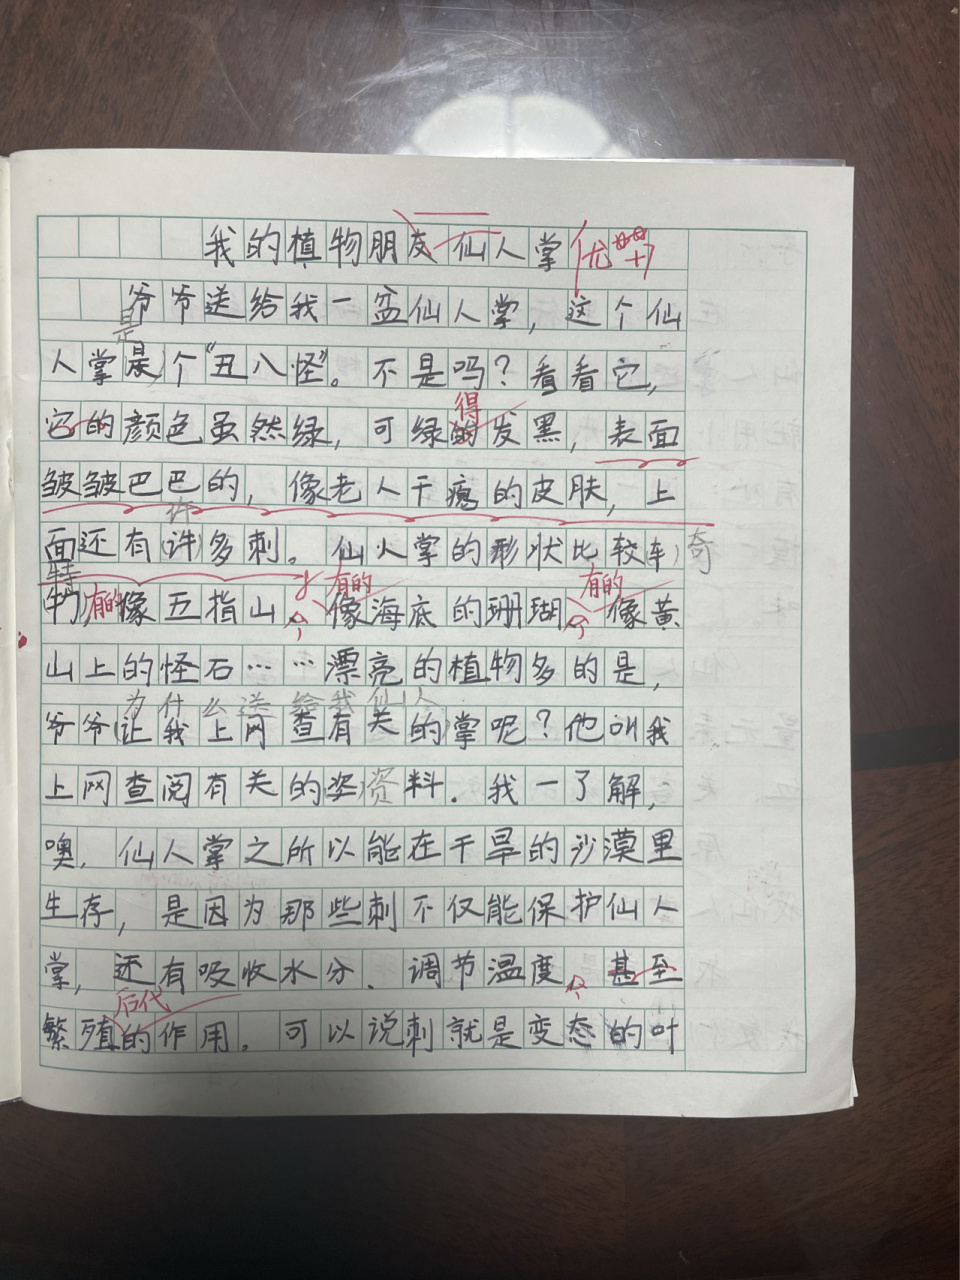 我的植物朋友 仙人掌 优
爷爷送给我一盆仙人掌，这个仙
是
人掌是个“丑八怪”。不是吗？看看它，
得
它的颜色虽然绿，可绿的发黑，表面
皱皱巴巴的，像老人干瘪的皮肤，上
许
面还有(许)多刺。仙人掌的形状比较(车)奇
特 有的 有的
(牛)，有的像五指山 像海底的珊瑚 像黄
山上的怪石……漂亮的植物多的是，
为什么送给我仙人
爷爷(让我上网查有关的)掌呢？他叫我
上网查阅有关的资料．我一了解，
噢，仙人掌之所以能在干旱的沙漠里
生存，是因为那些刺不仅能保护仙人
掌，还有吸收水分、调节温度、甚至
后代
繁殖的作用．可以说刺就是变态的叶